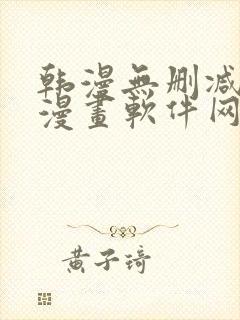 韩漫無删减
漫畫軟件网
黄子琦